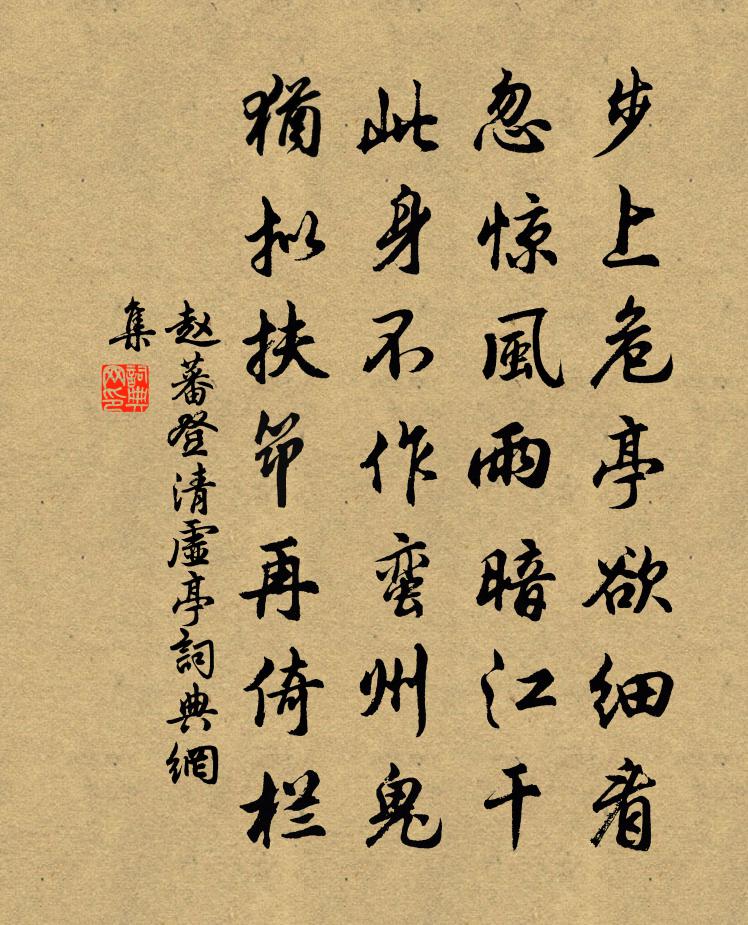 步上危亭欲细看
忽惊風雨暗江干
此身不作蛮州鬼
猶拟扶筇再倚栏
赵蕃登清虛亭詞典網
集
詞典網印